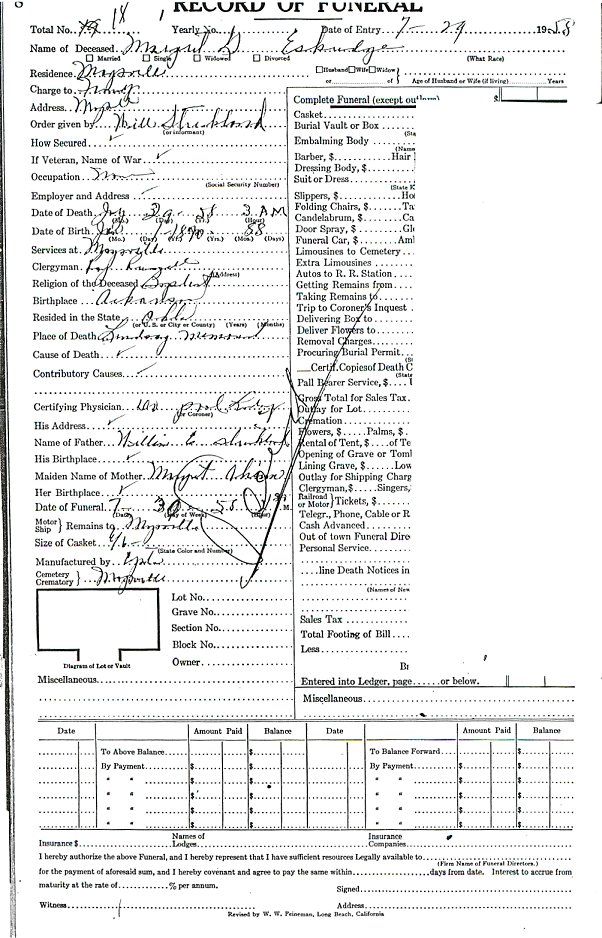 RECORD OF FUNERAL
Total No. 18 Yearly No. 1 Date of Entry 7-29 1958
Name of Deceased
☐ Married ☐ Single ☐ Widowed ☐ Divorced (What Race)
Residence Maysville ☐Husband ☐Wife ☐Widow
or of Age of Husband or Wife (if living) Years
Charge to Family
Address
Order given by Will
(or informant)
How Secured ✓
If Veteran, Name of War ✓
Occupation
(Social Security Number)
Employer and Address
Date of Death July 29 58 3 AM
(Mo.) (Day) (Yr.) (Hour)
Date of Birth 1-1870 88
(Mo.) (Day) (Yrs.) (Mos.) (Days)
Services at Maysville
Clergyman
(Address)
Religion of the Deceased Baptist
Birthplace Arkansas
Resided in the State Okla
(or U. S. or City or County) (Years) (Months)
Place of Death Lindsay Memorial
Cause of Death ✓
Contributory Causes
Certifying Physician
(or Coroner)
His Address ✓
Name of Father
His Birthplace ✓
Maiden Name of Mother
Her Birthplace ✓
Date of Funeral 7- 30 58 M.
(Date) (Day of Week) (Hour)
Motor Ship } Remains to Maysville
Size of Casket
(State Color and Number)
Manufactured by
Cemetery Crematory } Maysville
Lot No.
Grave No.
Section No.
Block No.
Owner
Diagram of Lot or Vault
Miscellaneous
Complete Funeral (except out $
Casket
Burial Vault or Box
(Sta
Embalming Body
(Name
Barber, $ Hair
Dressing Body, $
Suit or Dress
(State K
Slippers, $ Ho
Folding Chairs, $ Ta
Candelabrum, $ Ca
Door Spray, $ Gl
Funeral Car, $ Aml
Limousines to Cemetery
Extra Limousines
Autos to R. R. Station
Getting Remains from
Taking Remains to
Trip to Coroner's Inquest
Delivering Box to
Deliver Flowers to
Removal Charges
Procuring Burial Permit
(St
Certif. Copies of Death C
(State
Pall Bearer Service, $
Gross Total for Sales Tax
Outlay for Lot
Cremation
Flowers, $ Palms, $
Rental of Tent, $ of Te
Opening of Grave or Toml
Lining Grave, $ Low
Outlay for Shipping Charg
Clergyman, $ Singers,
Railroad or Motor } Tickets, $
Telegr., Phone, Cable or R
Cash Advanced
Out of town Funeral Dire
Personal Service
line Death Notices in
(Names of New
Sales Tax
Total Footing of Bill
Less
Entered into Ledger, page or below.
Miscellaneous
Date Amount Paid Balance Date Amount Paid Balance
To Above Balance $ To Balance Forward $ $
By Payment $ $ By Payment $ $
" " $ $ " " $ $
" " $ $ " " $ $
" " $ $ " " $ $
Insurance $ Names of Lodges Insurance Companies
I hereby authorize the above Funeral, and I hereby represent that I have sufficient resources Legally available to
(Firm Name of Funeral Directors.)
for the payment of aforesaid sum, and I hereby covenant and agree to pay the same within days from date. Interest to accrue from
maturity at the rate of % per annum. Signed
Witness Address
Revised by W. W. Feineman, Long Beach, California